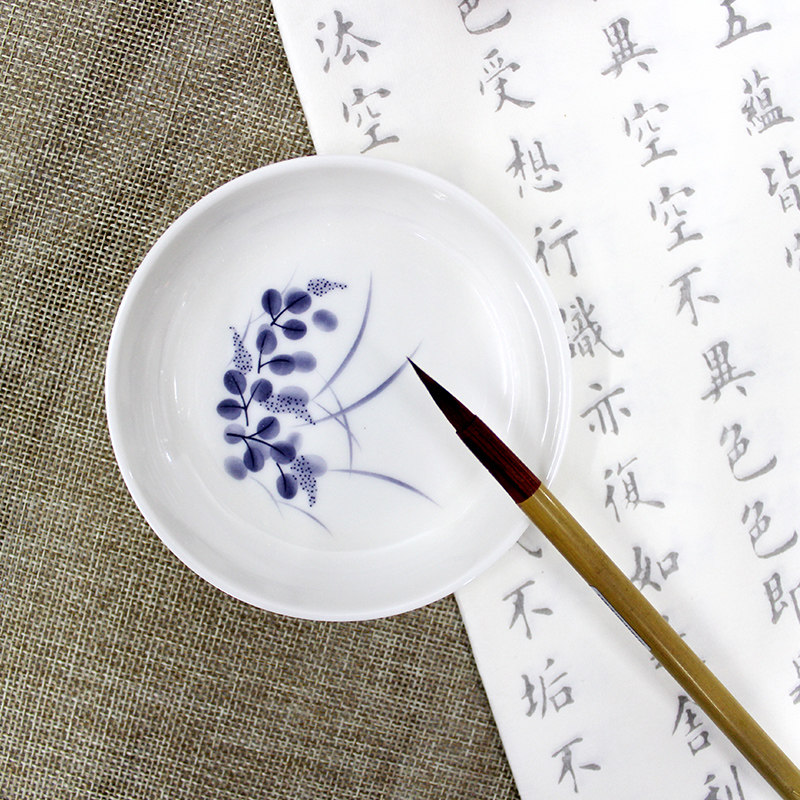 五蘊皆空
異空空不異色色即
色受想行識亦復如舍利
法空不垢不